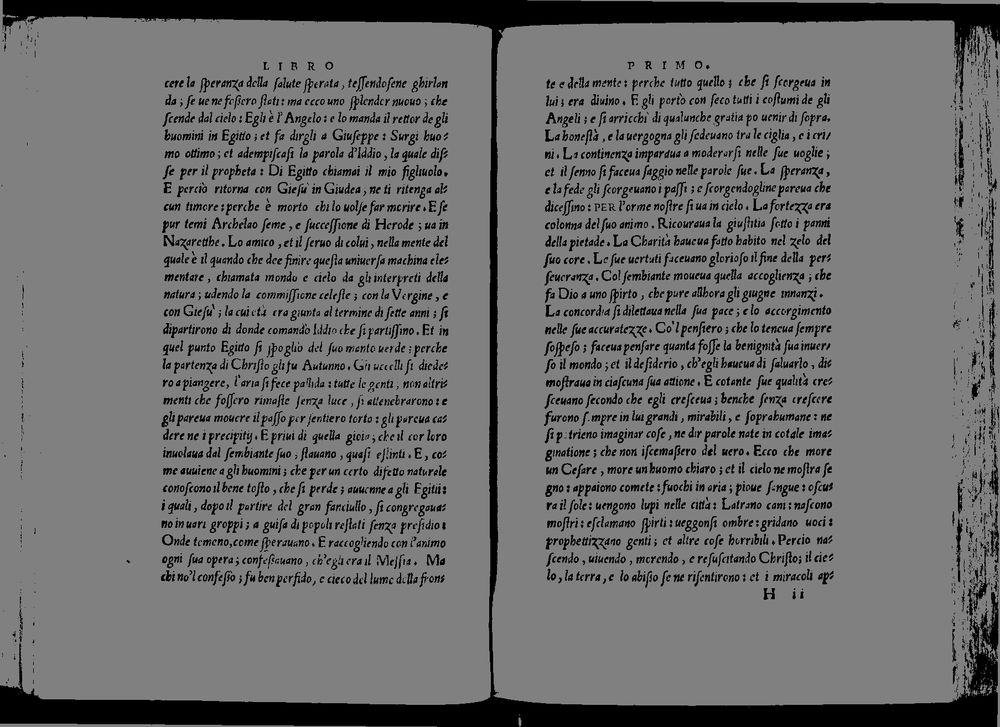 LIBRO
cere la speranza della salute sperata, tessendosene ghirlan
da; se ue ne fossero stati: ma ecco uno splender nuouo; che
scende dal cielo: Egli è l'Angelo: e lo manda il rettor de gli
huomini in Egitto; et fa dirgli a Giuseppe: Surgi huo=
mo ottimo; et adempiscasi la parola d'Iddio, la quale dis=
se per il propheta: Di Egitto chiamai il mio figliuolo.
E perciò ritorna con Giesu' in Giudea, ne ti ritenga al=
cun timore: perche è morto chi lo uolse far morire. E se
pur temi Archelao seme, e successione di Herode; ua in
Nazaretthe. Lo amico, et il seruo di colui, nella mente del
quale è il quando che dee finire questa uniuersa machina ele=
mentare, chiamata mondo e cielo da gli interpreti della
natura; udendo la commissione celeste; con la Vergine, e
con Giesu'; la cui età era giunta al termine di sette anni; si
dipartirono di donde comandò Iddio che si partissino. Et in
quel punto Egitto si spogliò del suo manto uerde; perche
la partenza di Christo gli fu Autunno. Gli uccelli si diede=
ro a piangere, l'aria si fece pallida: tutte le genti, non altri=
menti che fossero rimaste senza luce, si attenebrarono: e
gli pareua mouere il passo per sentiero torto: gli pareua ca=
dere ne i precipitij. E priui di quella gioia; che il cor loro
inuolaua dal sembiante suo; stauano, quasi estinti. E, co=
me auuiene a gli huomini; che per un certo difetto naturale
conoscono il bene tosto, che si perde; auuenne a gli Egitii:
i quali, dopo il partire del gran fanciullo, si congregaua=
no in uari groppi; a guisa di popoli restati senza presidio:
Onde temeno, come sperauano. E raccogliendo con l'animo
ogni sua opera; confessauano, ch'egli era il Messia. Ma
chi no'l confessò; fu ben perfido, e cieco del lume della fron=
PRIMO.
te e della mente: perche tutto quello; che si scorgeua in
lui; era diuino. E gli portò con seco tutti i costumi de gli
Angeli; e si arricchì di qualunche gratia po uenir di sopra.
La honestà, e la uergogna gli sedeuano tra le ciglia, e i cri=
ni. La continenza imparaua a moderarsi nelle sue uoglie;
et il senno si faceua saggio nelle parole sue. La speranza,
e la fede gli scorgeuano i passi; e scorgendogline pareua che
dicessino: PER l'orme nostre si ua in cielo. La fortezza era
colonna del suo animo. Ricouraua la giustitia sotto i panni
della pietade. La Charità haueua fatto habito nel zelo del
suo core. Le sue uertuti faceuano glorioso il fine della per=
seueranza. Col sembiante moueua quella accoglienza; che
fa Dio a uno spirto, che pure allhora gli giugne innanzi.
La concordia si dilettaua nella sua pace; e lo accorgimento
nelle sue accuratezze. Co'l pensiero; che lo teneua sempre
sospeso; faceua pensare quanta fosse la benignità sua inuer=
so il mondo; et il desiderio, ch'egli haueua di saluarlo, di=
mostraua in ciascuna sua attione. E cotante sue qualità cre=
sceuano secondo che egli cresceua; benche senza crescere
furono sempre in lui grandi, mirabili, e soprahumane: ne
si potrieno imaginar cose, ne dir parole nate in cotale ima=
ginatione; che non iscemassero del uero. Ecco che more
un Cesare, more un huomo chiaro; et il cielo ne mostra se
gno: appaiono comete: fuochi in aria; pioue sangue: oscu=
ra il sole: uengono lupi nelle città: Latrano cani: nascono
mostri: esclamano spirti: ueggonsi ombre: gridano uoci:
prophettizzano genti; et altre cose horribili. Percio na=
scendo, uiuendo, morendo, e resuscitando Christo; il cie=
lo, la terra, e lo abisso se ne risentirono: et i miracoli ap=
H ii